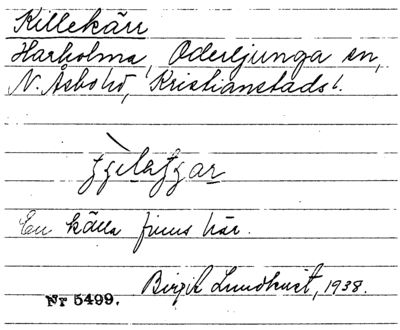 Killekärr
Harholma, Oderljunga sn,
N. Åsbo hd, Kristianstads l.
En källa finns här.
Birgit Lundkvist, 1938.
Nr 5499.